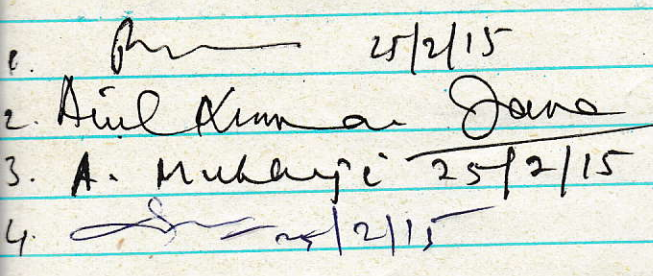 1. 25/2/15
2. Anil Kumar Jana
3. A. Mukherji 25/2/15
4. 25/2/15